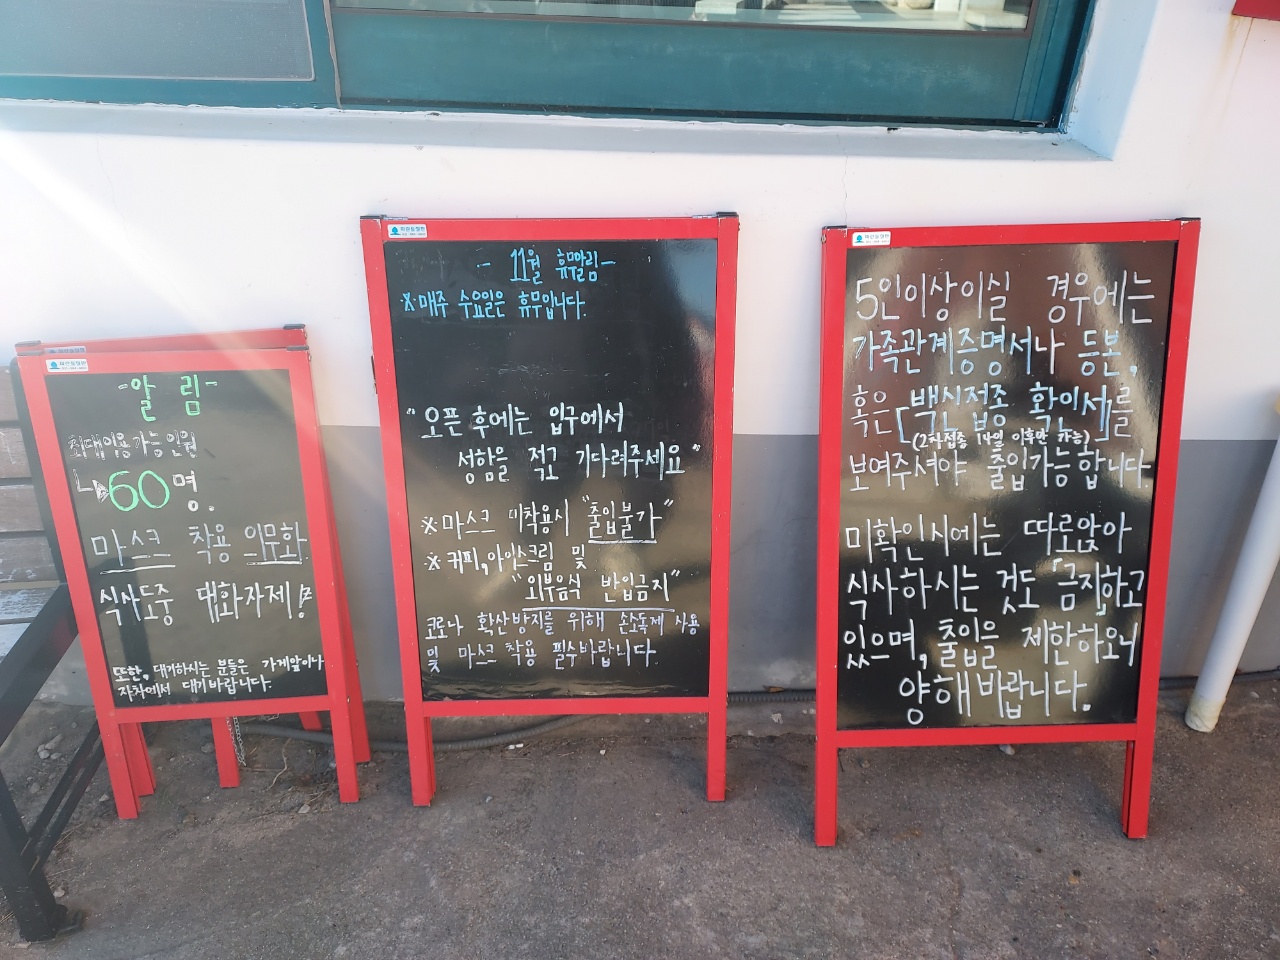 -알 림-
최대이용가능인원
↳60명.
마스크 착용 의무화
식사도중 대화자제!
또한, 대기하시는 분들은 가게앞이나
자차에서 대기바랍니다.
- 11월 휴무알림 -
※매주 수요일은 휴무입니다.
"오픈 후에는 입구에서
성함을 적고 기다려주세요"
※마스크 미착용시 "출입불가"
※커피,아이스크림 및
"외부음식 반입금지"
코로나 확산방지를 위해 손소독제 사용
및 마스크 착용 필수바랍니다.
5인이상이실 경우에는
가족관계증명서나 등본,
혹은 [백신접종 확인서]를
(2차접종 14일 이후만 가능)
보여주셔야 출입가능합니다.
미확인시에는 따로앉아
식사하시는 것도 「금지」하고
있으며, 출입을 제한하오니
양해바랍니다.